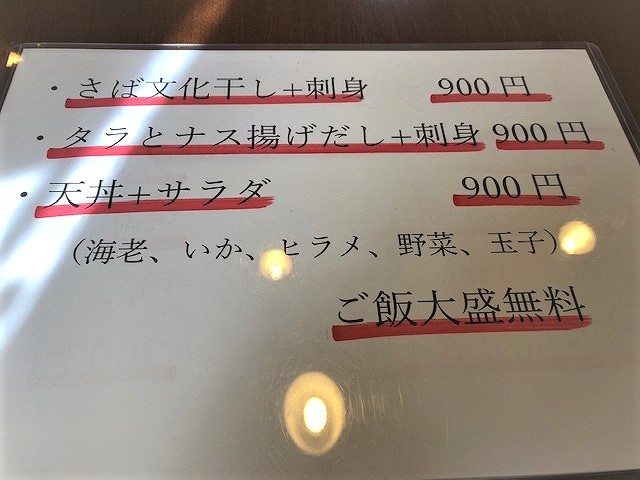 ・さば文化干し+刺身 900円
・タラとナス揚げだし+刺身 900円
・天丼+サラダ 900円
(海老、いか、ヒラメ、野菜、玉子)
ご飯大盛無料